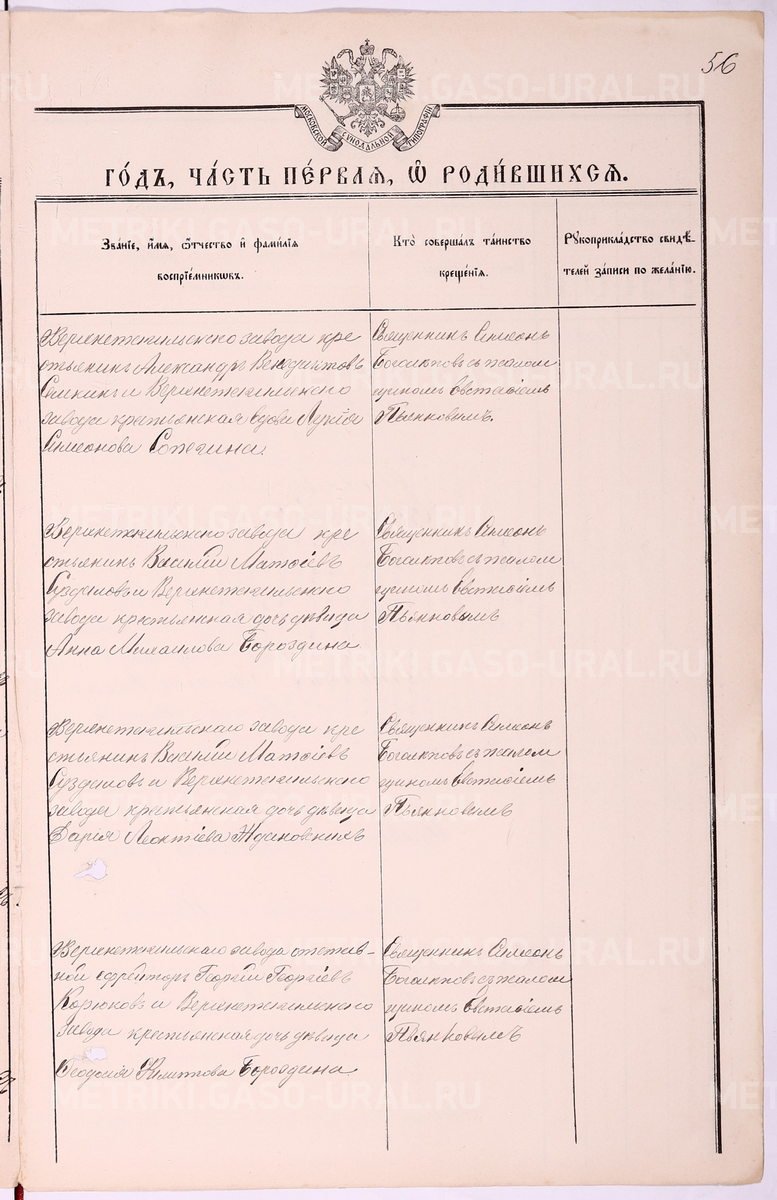 56
МОСКОВСКОЙ СѴНОДАЛЬНОЙ ТИПОГРАФІИ
ГО́ДЪ, ЧА́СТЬ ПЕ́РВАѦ, Ѡ҆ РОДИ́ВШИХСѦ.
Зва́нїе, и҆́мѧ, ѻ҆́тчество и҆ фами́лїѧ
воспрїе́мникѡвъ.
Кто̀ соверша́лъ та́инство
креще́нїѧ.
Рꙋкоприкла́дство свидѣ́-
телей за́писи по жела́нїю.
Верхнетагильскаго завода кре
стьянинъ Александръ Венедиктовъ
и Верхнетагильскаго
завода крестьянская вдова
Симеонова
Священникъ Симеонъ
Боголюповъ съ псалом
щикомъ Евстафіемъ
Пьянковымъ.
Верхнетагильскаго завода кре
стьянинъ Василій Матѳіевъ
Суздаловъ и Верхнетагильскаго
завода крестьянская дочь дѣвица
Анна Михаилова Бороздина
Священникъ Симеонъ
Боголюповъ съ псалом
щикомъ Евстафіемъ
Пьянковымъ
Верхнетагильскаго завода кре
стьянинъ Василій Матѳіевъ
Суздаловъ и Верхнетагильскаго
завода крестьянская дочь дѣвица
Дарія Леонтіева Ждановскихъ
Священникъ Симеонъ
Боголюповъ съ псалом
щикомъ Евстафіемъ
Пьянковымъ
Верхнетагильскаго завода отстав-
ной ефрейторъ Георгій Георгіевъ
Корюковъ и Верхнетагильскаго
завода крестьянская дочь дѣвица
Ѳеодосія Бороздина
Священникъ Симеонъ
Боголюповъ съ псалом
щикомъ Евстафіемъ
Пьянковымъ
METRIKI.GASO-URAL.RU